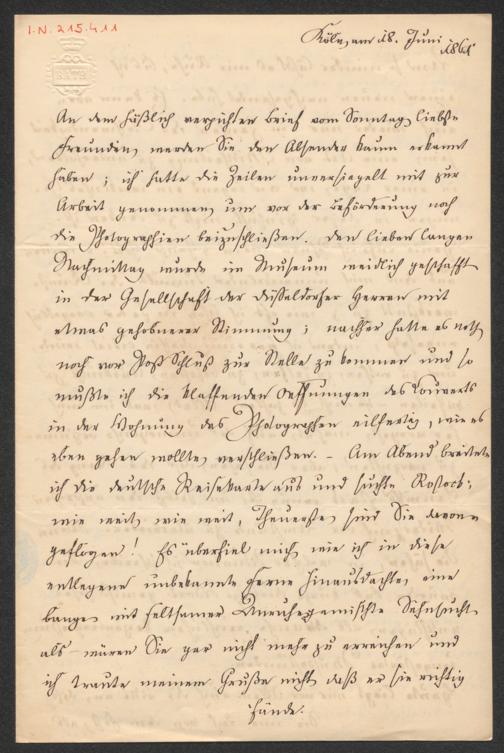 I.N. 215.411
BATH
Köln, am 18. Juni 1861
An dem häßlich verpichten Brief vom Sonntag, liebste
Freundin, werden Sie den Absender kaum erkannt
haben; ich hatte die Zeilen unversiegelt mit zur
Arbeit genommen, um vor der Beförderung noch
die Photographien beizuschließen. Den lieben langen
Nachmittag wurde im Museum weidlich geschafft
in der Gesellschaft der Düsseldorfer Herren mit
etwas gehobnerer Stimmung; nachher hatte es noth
noch vor Post Schluß zur Stelle zu kommen und so
mußte ich die klaffenden Oeffnungen des Couverts
in der Wohnung des Photographen eilfertig, wie es
eben gehen wollte, verschließen. – Am Abend breitete
ich die deutsche Reisekarte aus und suchte Rostock;
wie weit, wie weit, Theuerste, sind Sie davon
geflogen! Es überfiel mich, wie ich in diese
entlegene unbekannte Ferne hinausdachte, eine
bange, mit seltsamer Unruhe gemischte Sehnsucht
als wären Sie gar nicht mehr zu erreichen und
ich traute meinem Gruße nicht, daß er Sie richtig
fände.